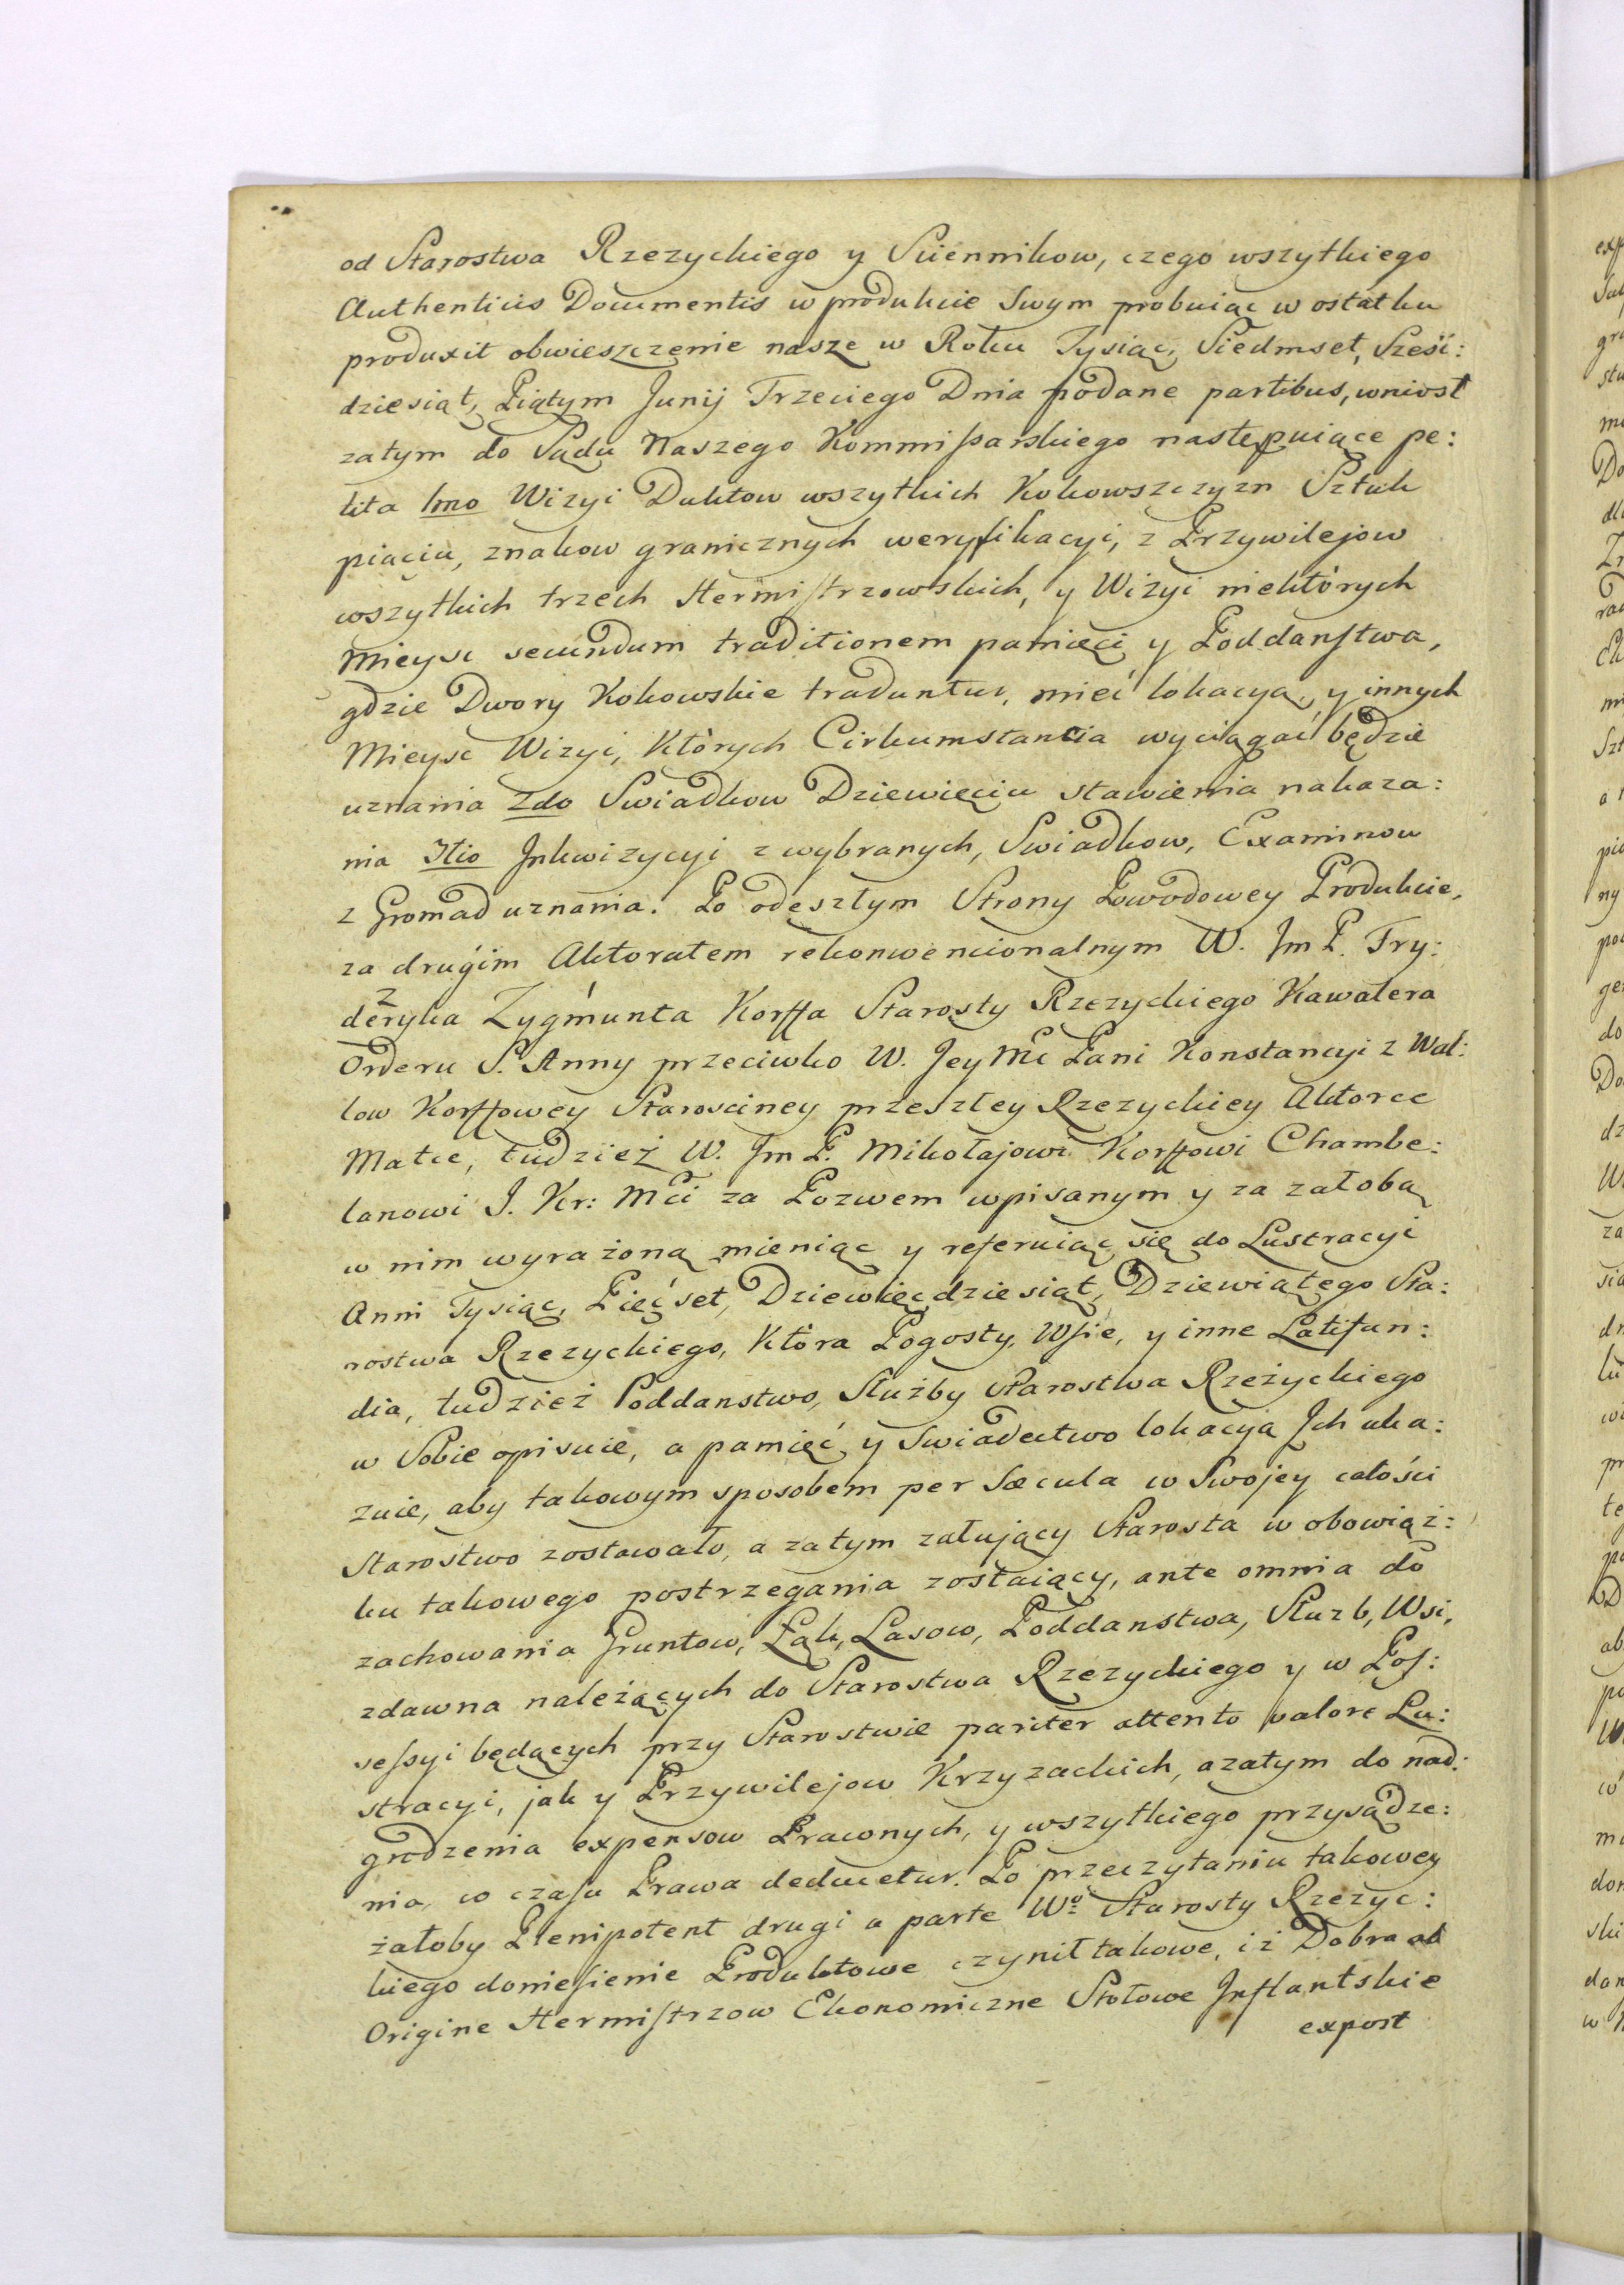 od Starostwa Rzezyckiego y Sciennikow, czego wszytkiego
Authenticis Documentis w produkcie Swym probuiąc w ostatku
produxit obwieszczenie nasze w Roku Tysiąc, Siedmset, Sześć:
dziesiąt, Piątym Junij Trzeciego Dnia podane partibus, wniosł
zatym do Sądu Naszego Kommissarskiego następuiące pe:
tita 1mo Wizyi Duktow wszytkich Kokowszczyzn Sztuk
piąciu, znakow granicznych weryfikacyi, z Przywilejow
wszytkich trzech Hermistrzowskich, y Wizyi niektórych
Mieysc secundum traditionem pamięci y Poddanstwa,
gdzie Dwory Kokowskie traduntur, mieć lokacyą, y innych
Mieysc Wizyi, których Cirkumstancia wyciągać będzie
uznania 2do Swiadkow Dziewięciu stawienia nakaza:
nia 3tio Jnkwizycyi z wybranych, Swiadkow, Examinow
z Gromad uznania. Po odeszłym Strony Powodowey Produkcie,
za drugim Aktoratem rekonwencionalnym W. Jm P. Fry:
deryka Zygmunta Korffa Starosty Rzezyckiego Kawalera
Orderu S. Anny przeciwko W. Jey Mć Pani Konstancyi z Wal:
low Korffowey Starosciney przeszłey Rzezyckiey Aktorce
Matce, tudzież W. Jm P. Mikołajowi Korffowi Chambe:
lanowi J. Kr: Mci za Pozwem wpisanym y za załobą
w nim wyrażoną mieniąc y referuiąc się do Lustracyi
Anni Tysiąc, Pięćset, Dziewięcdziesiąt, Dziewiątego Sta:
rostwa Rzezyckiego, która Pogosty, Wsie, y inne Latifun:
dia, tudzież Poddanstwo, Służby Starostwa Rzeżyckiego
w Sobie opisuie, a pamięć y Swiadectwo lokacyą Jch uka:
zuie, aby takowym sposobem per Sæcula w Swojey całości
Starostwo zostawało, a zatym załujący Starosta w obowiąz:
ku takowego postrzegania zostaiący, ante omnia do
zachowania Gruntow, Łąk, Lasow, Poddanstwa, Służb, Wsi,
zdawna należących do Starostwa Rzezyckiego y w Pos:
sessyi będących przy Starostwie pariter attento valore Lu:
stracyi, jak y Przywilejow Krzyzackich, a zatym do nad:
grodzenia expensow Prawnych, y wszytkiego przysądze:
nia, co czasu Prawa deducetur. Po przeczytaniu takowey
żałoby Plenipotent drugi a parte Wº Starosty Rzezyc:
kiego doniesienie Produktowe czynił takowe, iż Dobra ab
Origine Hermistrzow Ekonomiczne Stołowe Jnflantskie
expost